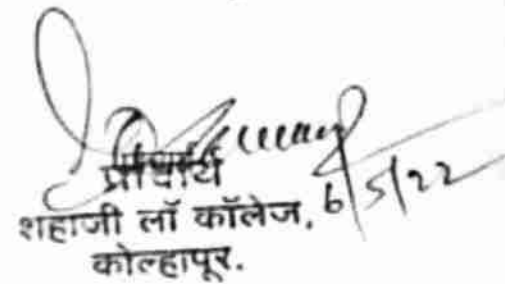 प्राचार्य
शहाजी लॉ कॉलेज, 6/5/22
कोल्हापूर.